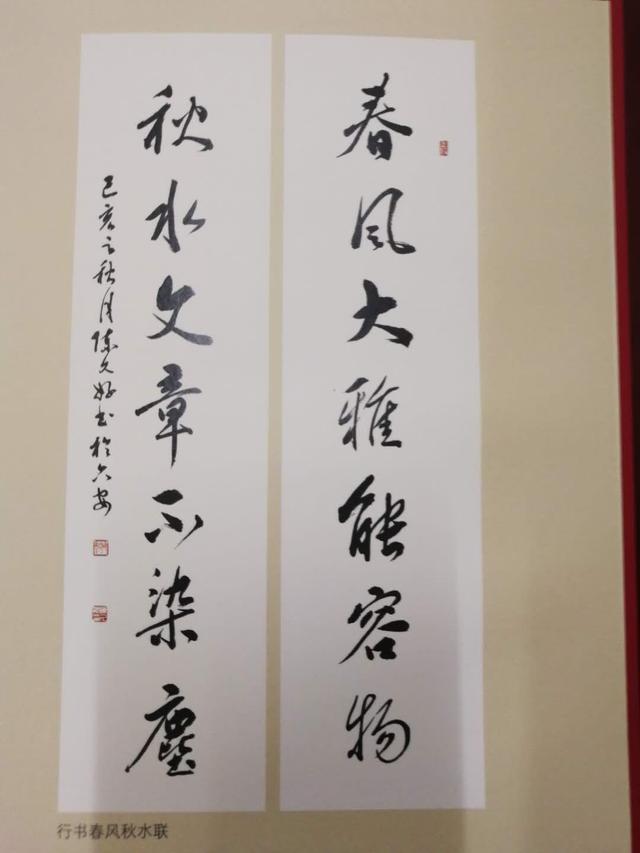 春风大雅能容物
秋水文章不染塵
己亥之秋月陈文好书於六安
行书春风秋水联